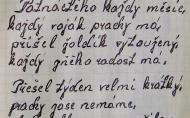 Patnáctého každý měsíc,
každý voják prachy má,
přišel žoldík vytoužený,
každý z něho radost má,
Přešel týden velmi krátký,
prachy zase nemáme,